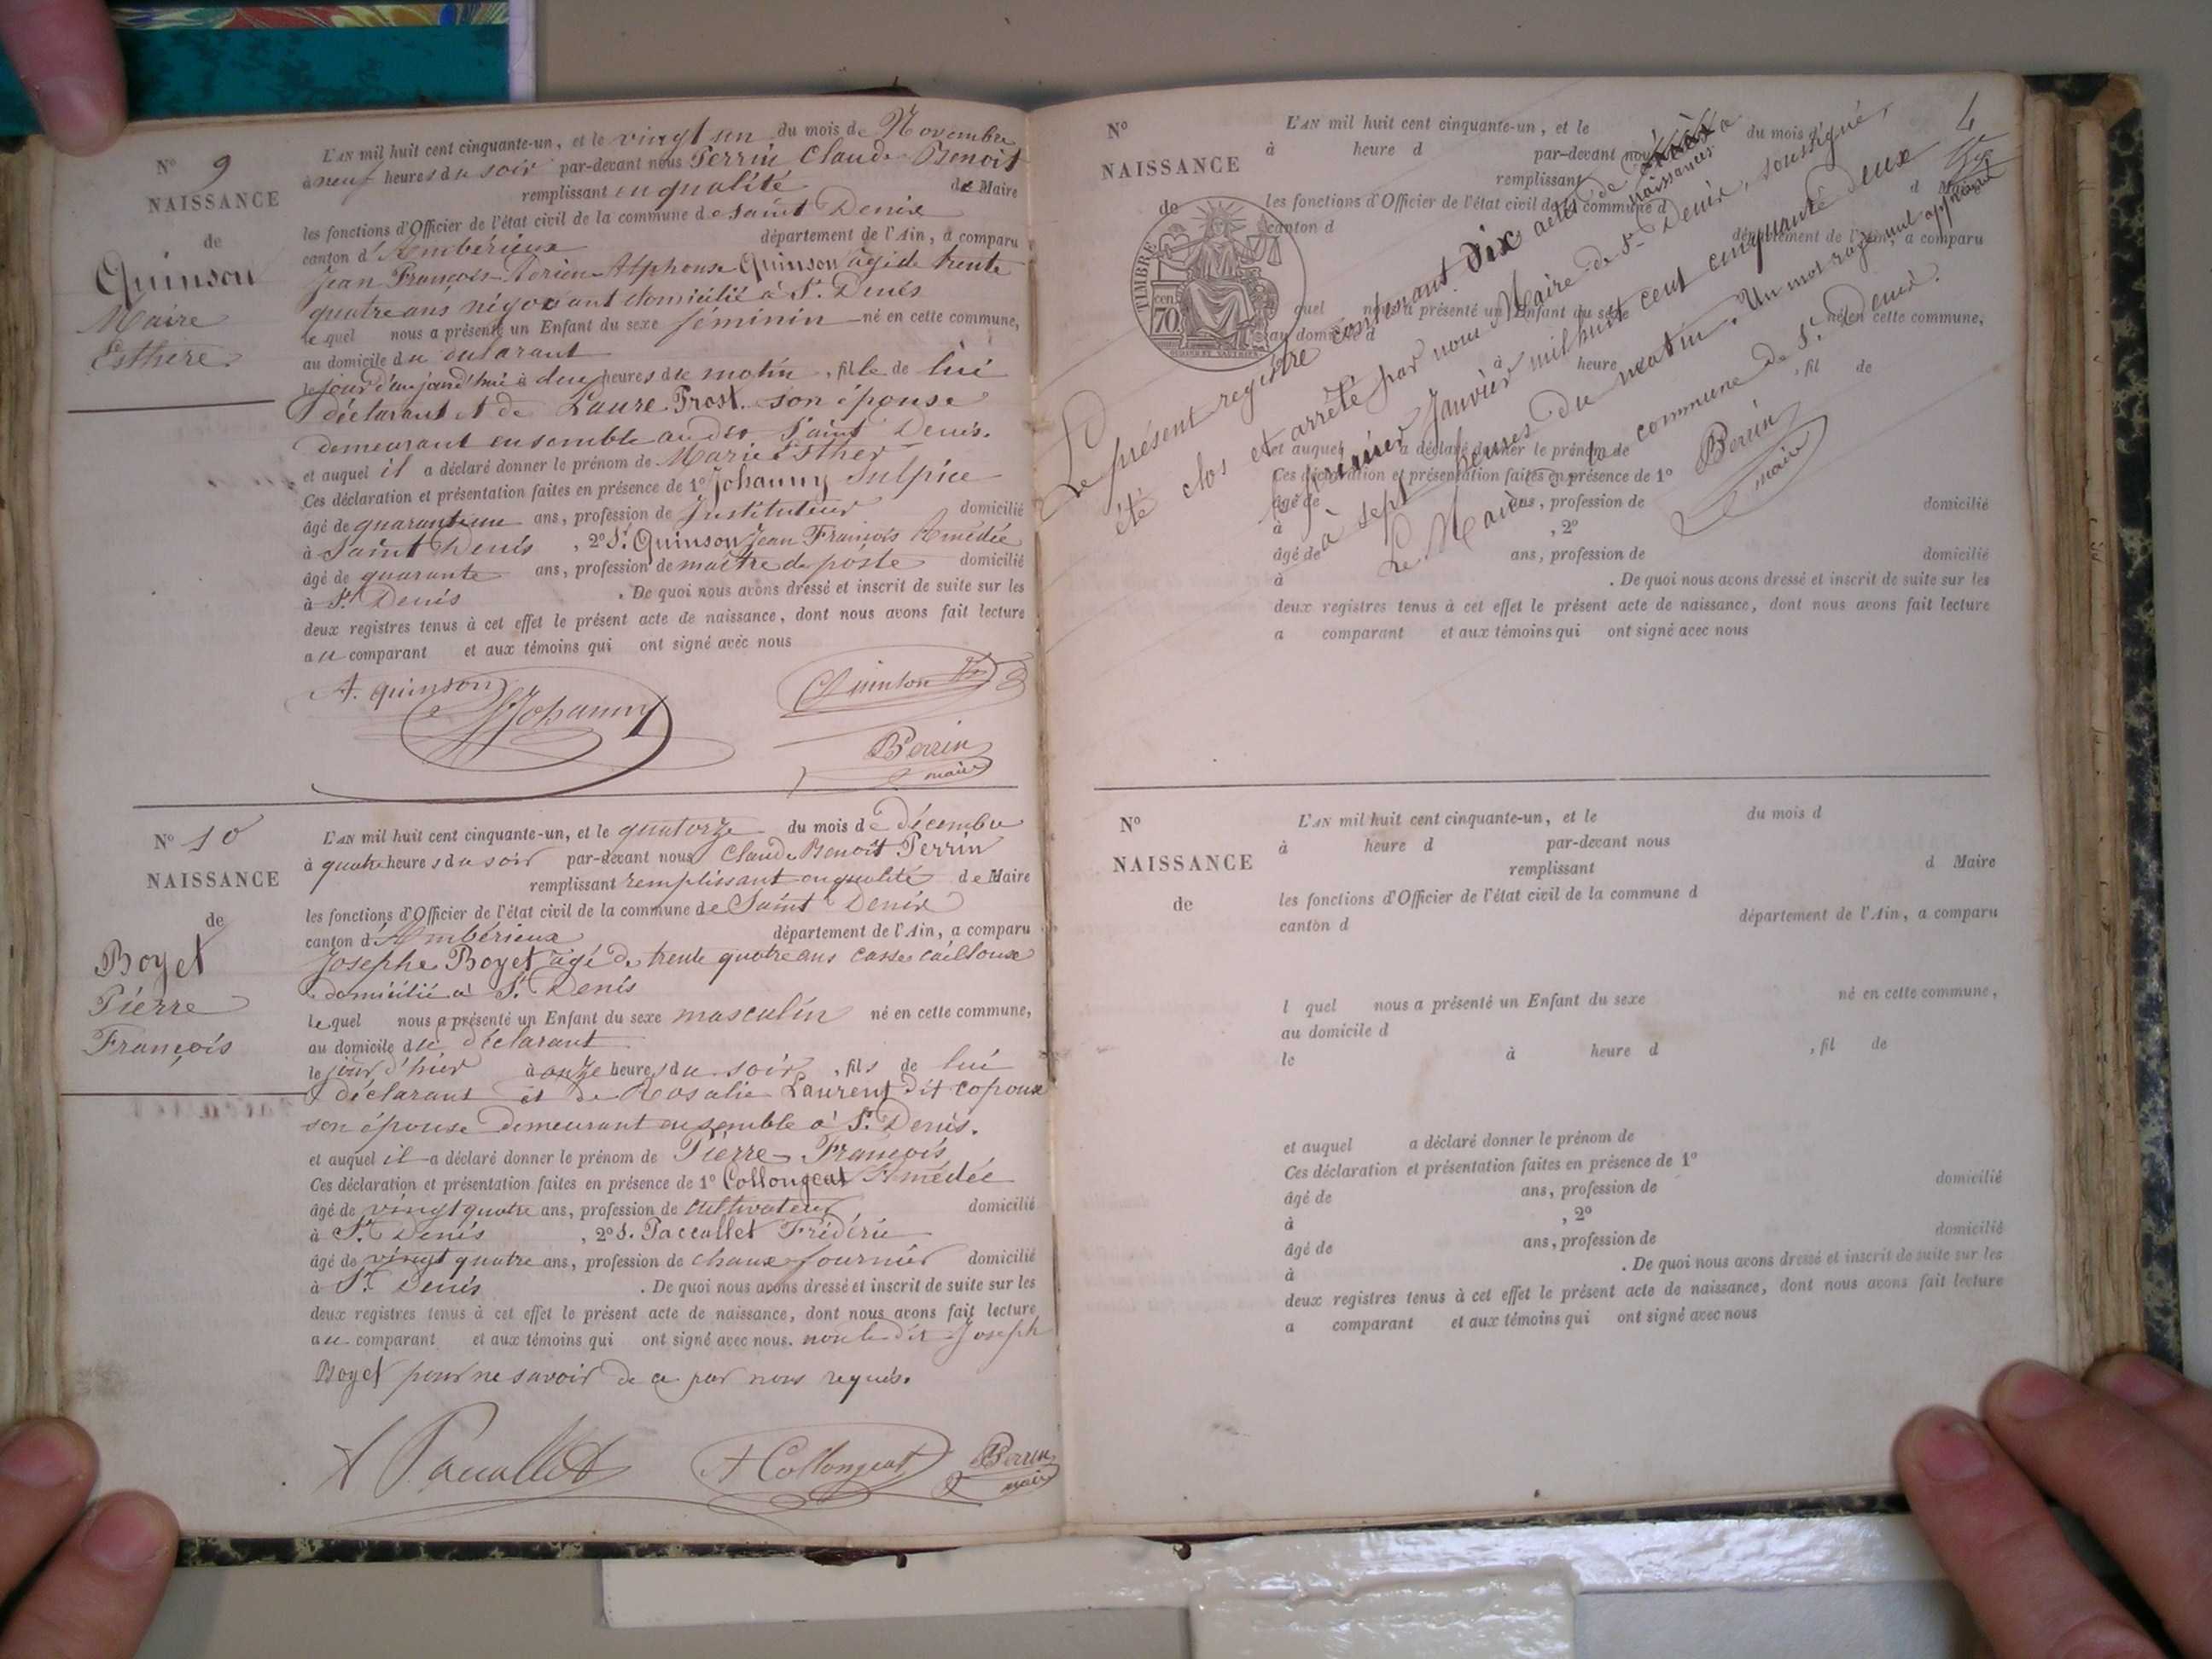 N° 9
NAISSANCE
de
Quinson
Marie
Esthère
L'AN mil huit cent cinquante-un, et le vingt un du mois de Novembre
à neuf heures du soir par-devant nous Perrin Claude Benoit
remplissant en qualité de Maire
les fonctions d'Officier de l'état civil de la commune de Saint Denis
canton d'Ambérieux département de l'Ain, a comparu
Jean François Alphonse Quinson âgé de trente
quatre ans négociant domicilié à St. Denis
lequel nous a présenté un Enfant du sexe féminin né en cette commune,
au domicile du déclarant
le jour d'aujourd'hui à deux heures du matin, fille de lui
déclarant et de Laure Prost son épouse
demeurant ensemble au dit Saint Denis.
et auquel il a déclaré donner le prénom de Marie Esther
Ces déclaration et présentation faites en présence de 1° Johanny Sulpice
âgé de quarante un ans, profession de Instituteur domicilié
à Saint Denis, 2° S. Quinson Jean François Amédée
âgé de quarante ans, profession de maître de poste domicilié
à St. Denis. De quoi nous avons dressé et inscrit de suite sur les
deux registres tenus à cet effet le présent acte de naissance, dont nous avons fait lecture
au comparant et aux témoins qui ont signé avec nous
A. quinson Quinson
Johanny
Perrin
maire
N° 10
NAISSANCE
de
Boyet
Pierre
François
L'AN mil huit cent cinquante-un, et le quatorze du mois de décembre
à quatre heures du soir par-devant nous Claude Benoit Perrin
remplissant remplissant en qualité de Maire
les fonctions d'Officier de l'état civil de la commune de Saint Denis
canton d'Ambérieux département de l'Ain, a comparu
Josephe Boyet âgé de trente quatre ans casse cailloux
domicilié à St. Denis
lequel nous a présenté un Enfant du sexe masculin né en cette commune,
au domicile du déclarant
le jour d'hier à onze heures du soir, fils de lui
déclarant et de Rosalie Laurent dit copoux
son épouse demeurant ensemble à St. Denis.
et auquel il a déclaré donner le prénom de Pierre François
Ces déclaration et présentation faites en présence de 1° Collongeat Amédée
âgé de vingt quatre ans, profession de cultivateur domicilié
à St. Denis, 2° S. Paccallet Frédéric
âgé de vingt quatre ans, profession de chaux fournier domicilié
à St. Denis. De quoi nous avons dressé et inscrit de suite sur les
deux registres tenus à cet effet le présent acte de naissance, dont nous avons fait lecture
au comparant et aux témoins qui ont signé avec nous. non le dit Joseph
Boyet pour ne savoir de ce par nous requis.
Paccallet A Collongeat Perrin
maire
4
N°
NAISSANCE
de
TIMBRE
70 cen
L'AN mil huit cent cinquante-un, et le du mois d
à heure d par-devant nous
remplissant d Maire
les fonctions d'Officier de l'état civil de la commune d
canton d département de l'Ain, a comparu
l quel nous a présenté un Enfant du sexe né en cette commune,
au domicile d
le à heure d , fil de
et auquel a déclaré donner le prénom de
Ces déclaration et présentation faites en présence de 1°
âgé de ans, profession de domicilié
à , 2°
âgé de ans, profession de domicilié
à . De quoi nous avons dressé et inscrit de suite sur les
deux registres tenus à cet effet le présent acte de naissance, dont nous avons fait lecture
a comparant et aux témoins qui ont signé avec nous
Le présent registre contenant Dix actes de naissances a
été clos et arrêté par nous Maire de St. Denis, soussigné,
le premier Janvier mil huit cent cinquante deux
à sept heures du matin. Un mot rayé nul approuvé
Le Maire de la commune de St. Denis.
Perrin
maire
N°
NAISSANCE
de
L'AN mil huit cent cinquante-un, et le du mois d
à heure d par-devant nous
remplissant d Maire
les fonctions d'Officier de l'état civil de la commune d
canton d département de l'Ain, a comparu
l quel nous a présenté un Enfant du sexe né en cette commune,
au domicile d
le à heure d , fil de
et auquel a déclaré donner le prénom de
Ces déclaration et présentation faites en présence de 1°
âgé de ans, profession de domicilié
à , 2°
âgé de ans, profession de domicilié
à . De quoi nous avons dressé et inscrit de suite sur les
deux registres tenus à cet effet le présent acte de naissance, dont nous avons fait lecture
a comparant et aux témoins qui ont signé avec nous